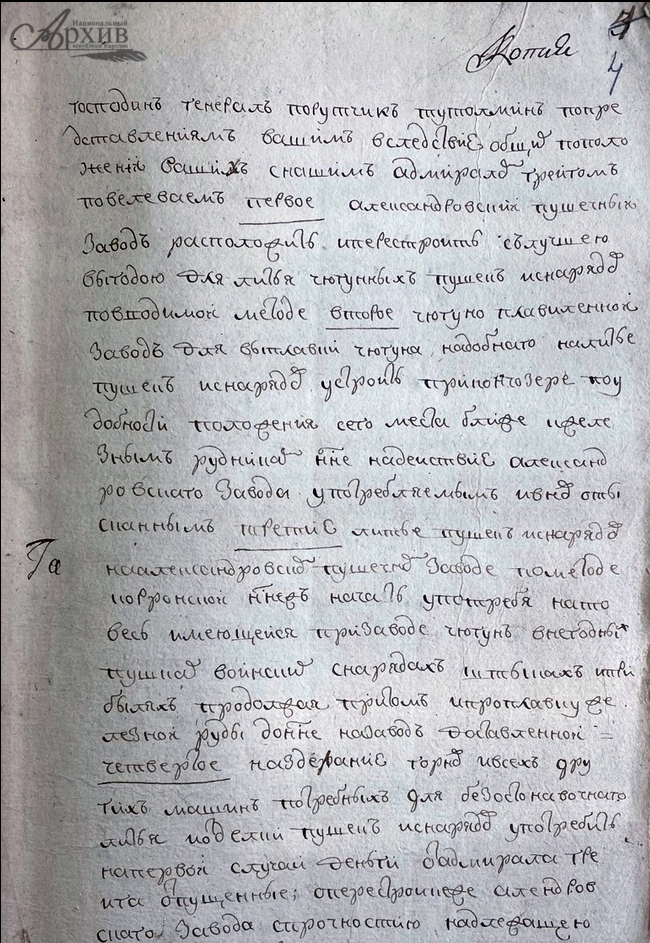 Национальный
Архив
Республики Карелия
Копия
4
господинъ генералъ порутчикъ тутолминъ попре
дставлениямъ вашимъ вследствие общих пополо
жении вашихъ снашимъ адмиралом грейгомъ
повелеваемъ первое александровский пушечный
Заводъ расположить иперестроить сълучшею
выгодою для литья чюгунныхъ пушекъ иснарядов
повпо­димой методе второе чюгуно плавиленной
Заводъ для выплавки чюгуна надобнаго налитье
пушекъ иснарядов устроить припончозере поу
добности положения сего места ближе кжеле
Знымъ рудникам нне надействие александ
ровскаго Завода употребляемымъ ивнов оты
сканнымъ третие литье пушекъ иснарядов
наалександровском пушечном Заводе пометоде
карронской ннеже начать употребя нато
весь имеющейся призаводе чюгунъ внегодных
пушках воинских снарядахъ штыкахъ ипри
быляхъ продолжая притом ипроплавку же
лезной руды донне назаводъ доставленной =
четвертое назделание горнов ивсехъ дру
гихъ машинъ потребныхъ для безостановочнаго
литья иоделки пушекъ иснарядов употребить
напервой случай деньги отадмирала гре
ига отпущенные; оперестройкеже алендров
скаго Завода спрочностию надлежащею